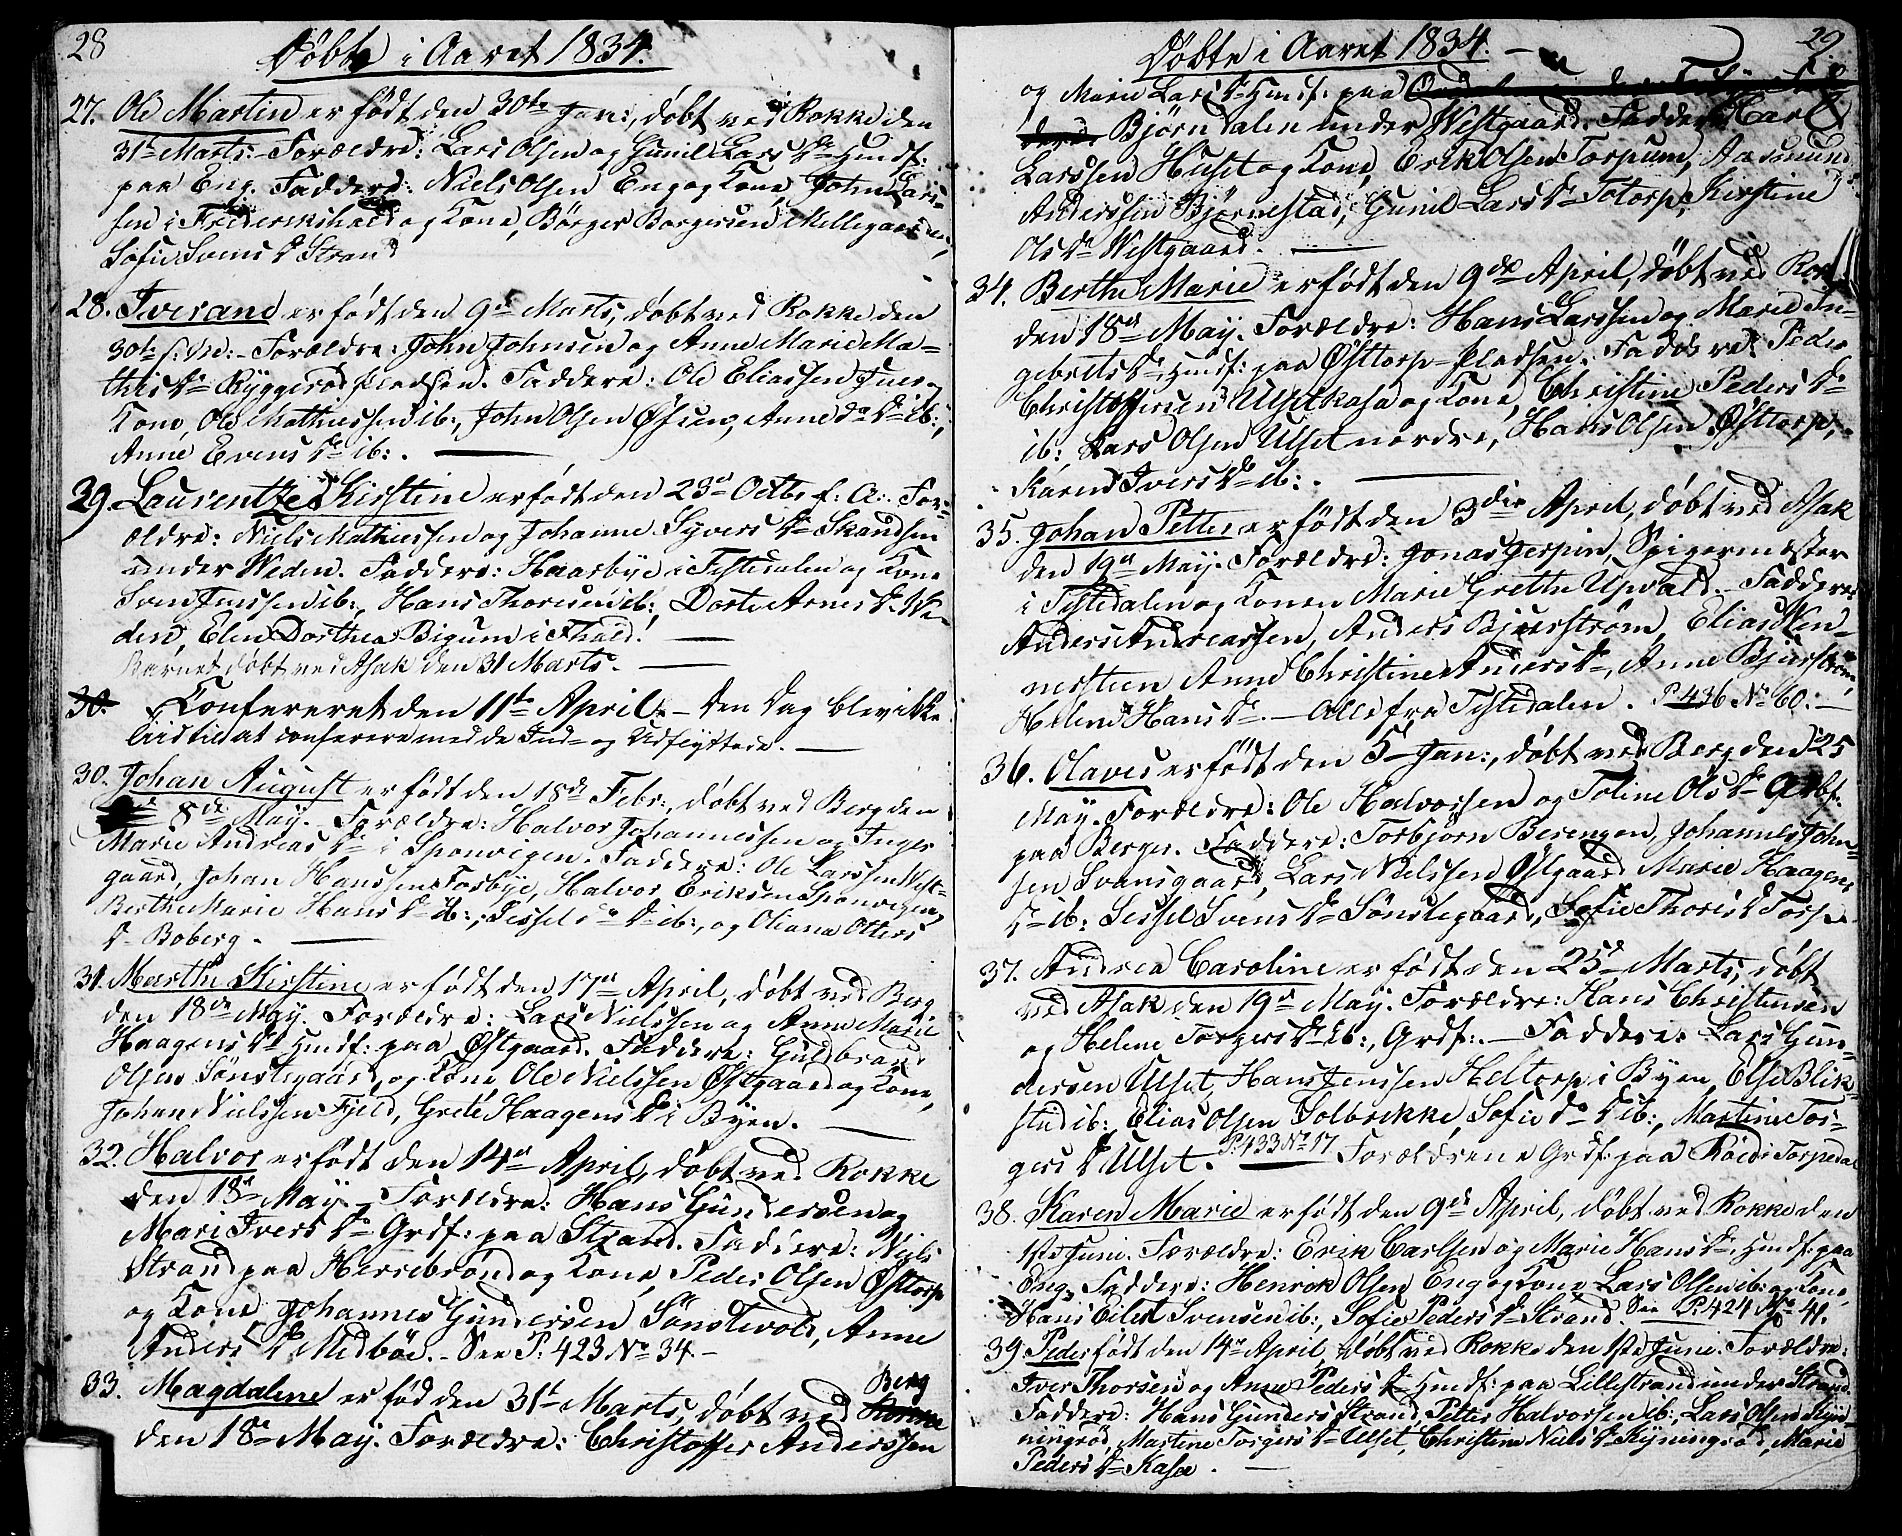 28
Döbte i Aaret 1834.
27. Ole Martin er födt den 30te Jan:, döbt ved Rokke den
31te Marts. Forældre: Lars Olsen og Gunil Lars Dr Huusf:
paa Eng. Faddere: Niels Olsen Eng og Kone, John Lars-
sen i Frederikshald og Kone, Börger Borgersen Mellegaarden,
Sofie Svens Dr Strand
28. Iverane er födt den 9de Marts, döbt ved Rokke den
30te s: Md:- Forældre: John Johnsen og Anne Marie Ma-
this Dr Byggerödpladsen. Faddere: Ole Eliassen og
Kone, Ole Mathiessen ib:, John Olsen, Anne Do Dr ib:,
Anne Evens Dr ib:.
29 Laurentze Kirstine er födt den 23de Octbr f: A: For-
ældre: Niels Mathiessen og Johanne Syvers Dr Skandsen
under Weden. Faddere: Haarbye i Tistedalen og Kone
Sven Jenssen ib:, Hans Thoresen ib:, Dorte Arnes Dr We-
den, Elen Dorthea Bigum i Fhald.
Barnet döbt ved Asak den 31 Marts.
30. Confereret den 11te April. - Den Dag blev ikke
Tid til at conferere med de Ind- og Udflyttede.
30. Johan August er födt den 18de Febr:, döbt ved Berg den
8de May. Forældre: Halvor Johannessen og Inger
Marie Andreas Dr i Sponvigen. Faddere: Ole Larssen West-
gaard, Johan Hanssen Torbye, Halvor Eriksen Sponvigen,
Berthe Marie Hans Dr ib:, Sissel do Dr ib:, og Oliana Otters
Dr Boberg.
31. Marthe Kirstine er födt den 17de April, döbt ved Berg
den 18de May. Forældre: Lars Nielssen og Anne Marie
Haagens Dr Huusf: paa Östgaard. Faddere: Guldbrand
Olsen Sönstegaard og Kone, Ole Nielssen Östgaard og Kone,
Johan Nielssen Fjeld, Grete Haagens Dr i Byen.
32. Halvor er födt den 14de April, döbt ved Rokke
den 18de May. Forældre: Hans Gundersen og
Mari Ivers Dr Grdf: paa Strand. Faddere: Niels
Strand paa Herrebrönd og Kone, Peder Olsen Östtorp
og Kone Johannes Gundersen Sönstevold, Anne
Anders Dr Medböe. - See P: 423 No 34.-
33. Magdalene er föd den 31te Marts, döbt ved Rokke Berg
den 18de May. Forældre: Christoffer Anderssen
29
Döbte i Aaret 1834.
og Marie Lars Dr Huusf: paa
Björndalen under Westgaard. Faddere: Karl
Larssen Huset og Kone, Erik Olsen Torpum, Aasmund
Anderssen Björnestad, Gunil Lars Dr Totorp, Kirstine
Ols Dr Westgaard.
34. Berthe Marie er födt den 9de April, döbt ved Rok
den 18de May. Forældre: Hans Larssen og Marie In-
gebrets Dr, Huusf: paa Östtorp-Pladsen. Faddere: Peder
Christoffersen Ulsetkasa og Kone, Christine Peders Dr
ib:, Lars Olsen Ulset nordre, Hans Olsen Östtorp,
Karen Ivers Dr ib:.
35. Johan Petter er födt den 3die April, döbt ved Asak
den 19de May. Forældre: Jonas Jerpin, Spigermester
i Tistedalen og Konen Marie Grethe Upvald. Faddere:
Anders Andreassen, Anders Bjurström, Elias Wen-
nersteen Anne Christine Anders Dr, Anne Bjurström,
Helene Hans Dr. - Alle fra Tistedalen. P. 436 No 60:-
36. Olaves er födt den 5te Jan:, döbt ved Berg den 25
May. Forældre: Ole Halvorssen og Toline Ols Dr
paa Berger. Faddere: Torbjörn Berengen, Johannes John-
sen Svansgaard, Lars Nielssen Östgaard Marie Haagens
Dr ib: Sessel Svens Dr Sönstegaard, Sofie Thores Dr Torp
37. Andrea Caroline er födt den 25de Marts, döbt
ved Asak den 19de May. Forældre: Hans Christensen
og Helene Torgers Dr ib:, Grdf:. - Faddere: Lars Gun-
dersen Ulset, Hans Jenssen Heltorp i Byen, Else Blik-
stud ib:, Elias Olsen Solbrekke, Sofie Do Dr ib:, Martine Tor-
gers Dr Ulset. P. 433 No 17 Forældrene Grdf: paa Röed i Torpedal
38. Karen Marie er födt den 9de April, döbt ved Rokke den
1ste Juni. Forældre: Erik Carlsen og Marie Hans Dr Huusf: paa
Eng. Faddere: Henrik Olsen Eng og Kone, Lars Olsen ib: og Kone,
Hans Eilert Svensen ib:, Sofie Peders Dr Strand. See P: 424 No 41.
39. Peder födt den 14de April, döbt ved Rokke den 1ste Juni. Forældre:
Iver Thorsen og Anne Peders Dr Huusf: paa Lillestrand under Strand.
Faddere: Hans Gunders: Strand, Petter Halvorssen ib:, Lars Olsen Kyn-
ningröd, Martine Torgers Dr Ulset, Christine Niels Dr Kynningröd, Marie
Peders Dr Kasa.